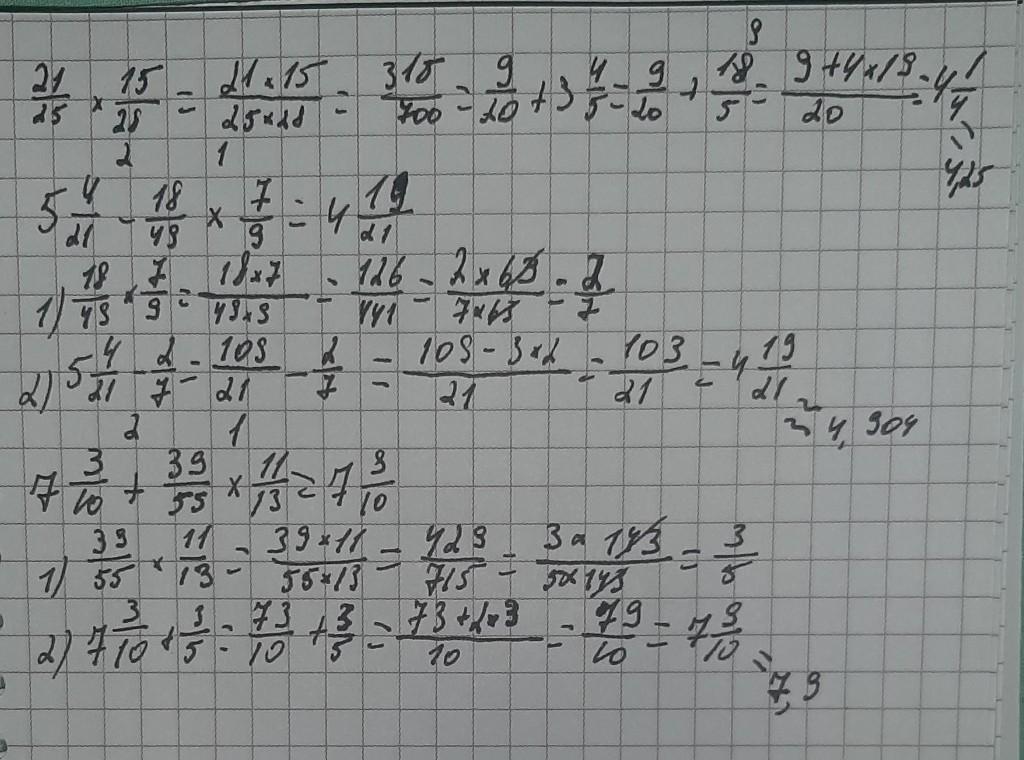 9
21/25 × 15/28 = 21×15/25×28 = 315/700 = 9/20 + 3 4/5 = 9/20 + 18/5 = 9+4×19/20 = 4 1/4 = 4,25
2 1
5 4/21 - 18/49 × 7/9 = 4 19/21
1) 18/49 × 7/9 = 18×7/49×9 = 126/441 = 2×63/7×63 = 2/7
2) 5 4/21 - 2/7 = 109/21 - 2/7 = 109-3×2/21 = 103/21 = 4 19/21 ≈ 4,904
2 1
7 3/10 + 39/55 × 11/13 = 7 9/10
1) 39/55 × 11/13 = 39×11/55×13 = 429/715 = 3×143/5×143 = 3/5
2) 7 3/10 + 3/5 = 73/10 + 3/5 = 73+2×3/10 = 79/10 = 7 9/10 = 7,9